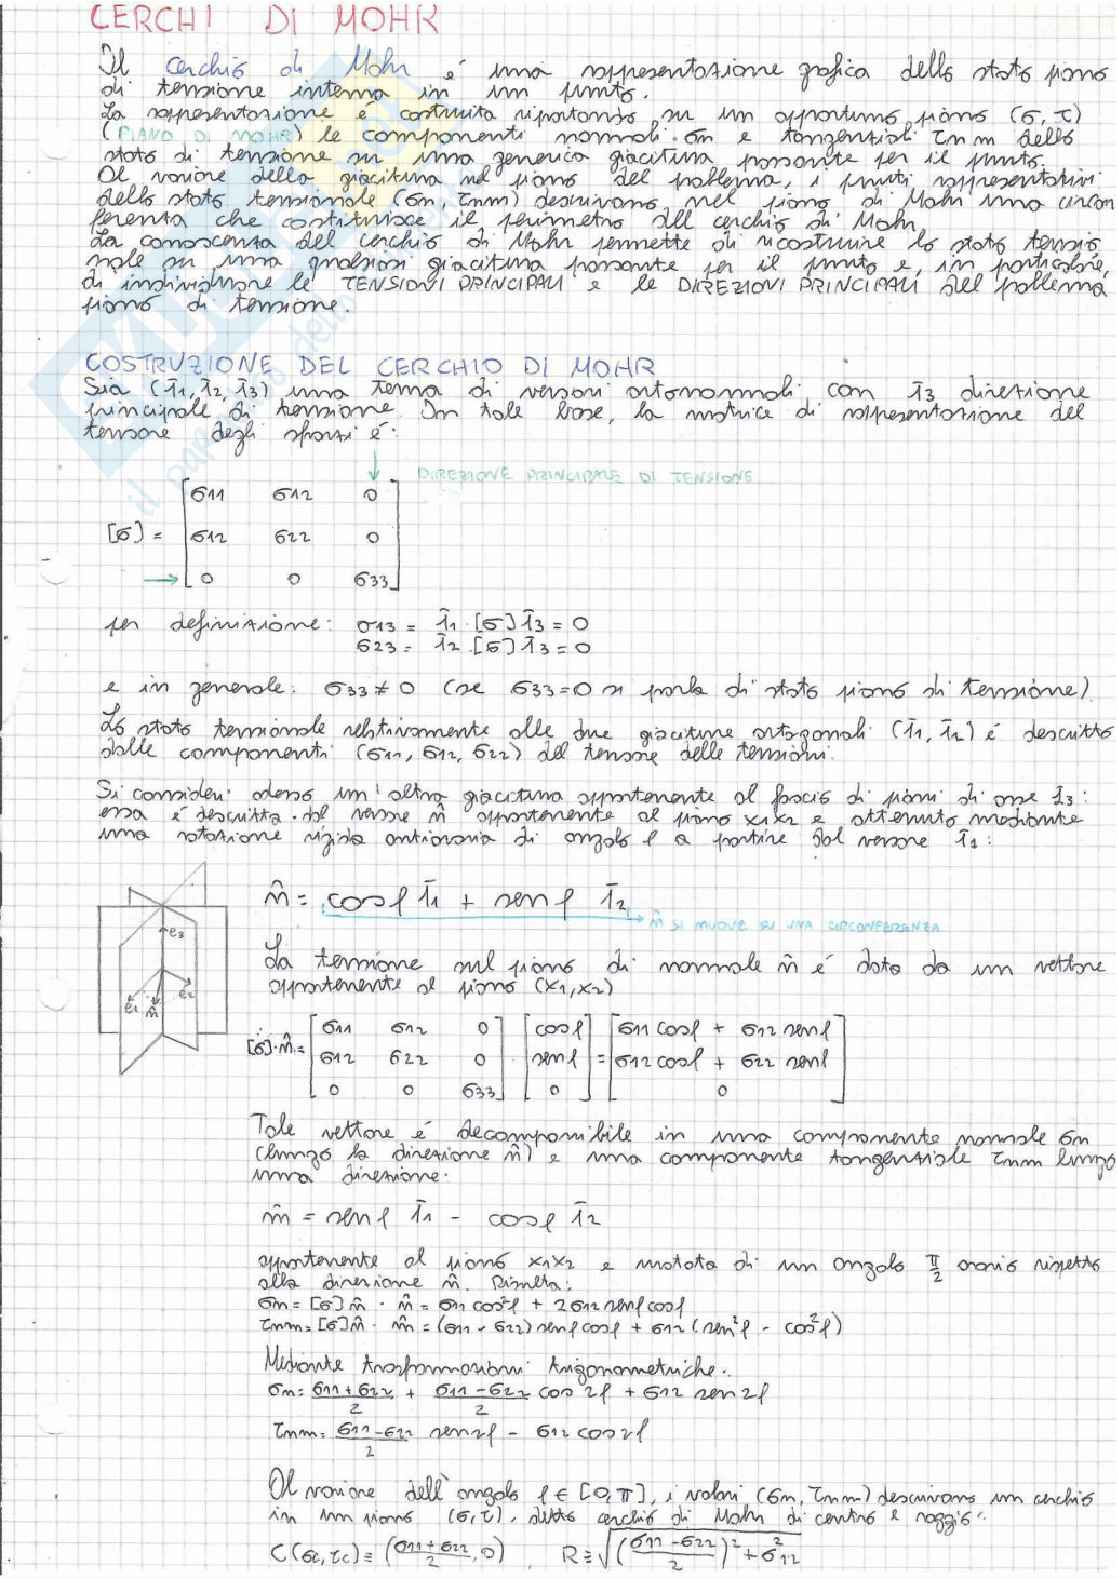 CERCHI DI MOHR
Il cerchio di Mohr é una rappresentazione grafica dello stato piano
di tensione interna in un punto.
La rappresentazione é costruita riportando su un opportuno piano (σ, τ)
(PIANO DI MOHR) le componenti normali σn e tangenziali τnm dello
stato di tensione su una generica giacitura passante per il punto.
Al variare della giacitura nel piano del problema, i punti rappresentativi
dello stato tensionale (σn, τnm) descrivono nel piano di Mohr una circon
ferenza che costituisce il perimetro del cerchio di Mohr.
La conoscenza del cerchio di Mohr permette di ricostruire lo stato tensio
nale su una qualsiasi giacitura passante per il punto e, in particolare,
di individuare le TENSIONI PRINCIPALI e le DIREZIONI PRINCIPALI del problema
piano di tensione.
COSTRUZIONE DEL CERCHIO DI MOHR
Sia (ī1, ī2, ī3) una terna di versori ortonormali con ī3 direzione
principale di tensione. In tale base, la matrice di rappresentazione del
tensore degli sforzi é:
↓ DIREZIONE PRINCIPALE DI TENSIONE
σ11 σ12 0
[σ] = σ12 σ22 0
→ 0 0 σ33
per definizione: σ13 = ī1 · [σ] ī3 = 0
σ23 = ī2 · [σ] ī3 = 0
e in generale: σ33 ≠ 0 (se σ33 = 0 si parla di stato piano di tensione)
Lo stato tensionale relativamente alle due giaciture ortogonali (ī1, ī2) é descritto
dalle componenti (σ11, σ12, σ22) del tensore delle tensioni.
Si consideri adesso un'altra giacitura appartenente al fascio di piani di asse ī3:
essa é descritta dal versore n̂ appartenente al piano x1x2 e ottenuto mediante
una rotazione rigida antioraria di angolo φ a partire dal versore ī1:
n̂ = cosφ ī1 + senφ ī2
→ n̂ SI MUOVE SU UNA CIRCONFERENZA
e3
e1 n̂ e2
La tensione sul piano di normale n̂ é data da un vettore
appartenente al piano (x1, x2)
σ11 σ12 0 cosφ σ11 cosφ + σ12 senφ
[σ]·n̂ = σ12 σ22 0 · senφ = σ12 cosφ + σ22 senφ
0 0 σ33 0 0
Tale vettore é decomponibile in una componente normale σn
(lungo la direzione n̂) e una componente tangenziale τnm lungo
una direzione:
m̂ = senφ ī1 - cosφ ī2
appartenente al piano x1x2 e ruotata di un angolo π/2 orario rispetto
alla direzione n̂. Risulta:
σn = [σ]n̂ · n̂ = σ11 cos²φ + 2σ12 senφ cosφ
τnm = [σ]n̂ · m̂ = (σ11 - σ22) senφ cosφ + σ12 (sen²φ - cos²φ)
Mediante trasformazioni trigonometriche:
σn = (σ11 + σ22)/2 + (σ11 - σ22)/2 cos 2φ + σ12 sen 2φ
τnm = (σ11 - σ22)/2 sen2φ - σ12 cos2φ
Al variare dell'angolo φ ∈ [0, π], i valori (σn, τnm) descrivono un cerchio
in un piano (σ, τ), detto cerchio di Mohr di centro e raggio:
C (σc, τc) ≡ ((σ11 + σ22)/2, 0) , R ≡ √(((σ11 - σ22)/2)² + σ12²)